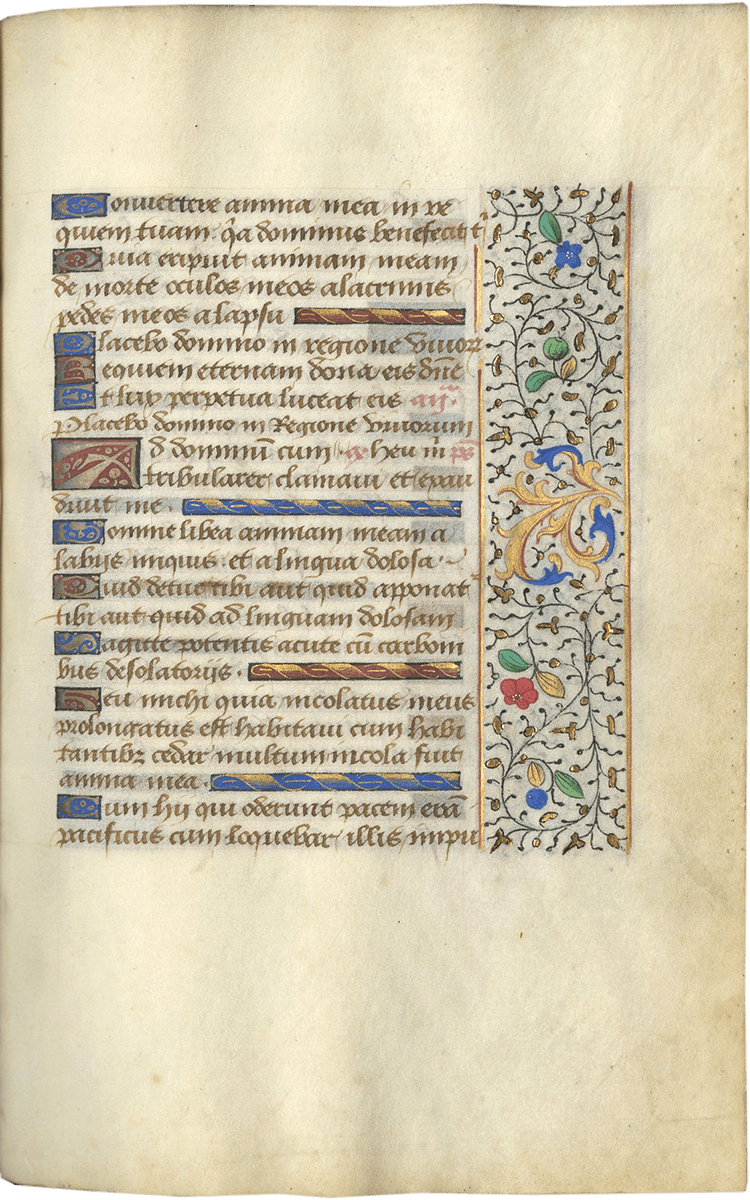 Convertere anima mea in re
quiem tuam · qa dominus benefecit t
Quia eripuit animam meam
de morte oculos meos a lacrimis
pedes meos a lapsu
Placebo domino in regione vivorz
Requiem eternam dona eis dne
Et lux perpetua luceat eis añ.
Placebo domino in Regione vivorum
Ad dominū cum ps heu m ps
tribularer clamavi et exau
divit me ·
Domine libea animam meam a
labijs iniquis · et a lingua dolosa ·
Quid detur tibi aut quid apponat
tibi aut quid ad linguam dolosam
Sagitte potentis acute cū carboni
bus desolatorijs ·
Heu michi quia incolatus meus
prolongatus est habitavi cum habi
tantibz cedar multum incola fuit
anima mea ·
Cum hij qui oderunt pacem erā
pacificus cum loquebar illis impu